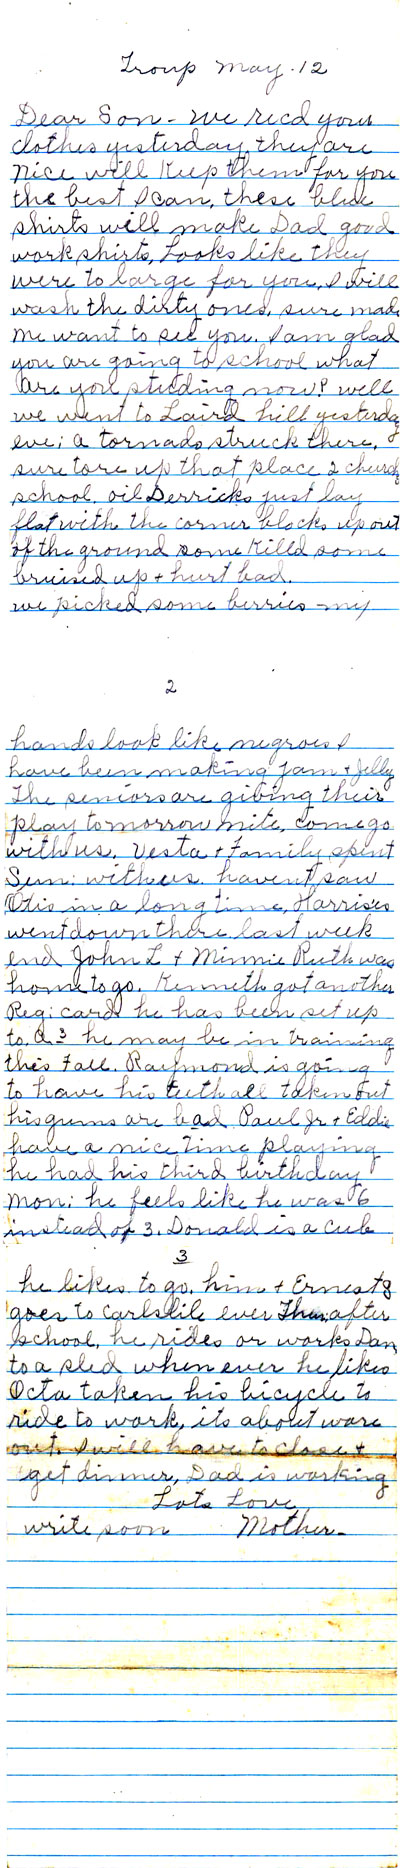 Troup May. 12
Dear Son - we recd your
clothes yesterday, they are
nice will Keep them for you
the best I can, these blue
shirts will make Dad good
work shirts, Looks like they
were to large for you, I will
wash the dirty ones, sure made
me want to see you. I am glad
you are going to school what
are you studing now? well
we went to Laird hill yesterday
eve; a tornado struck there,
sure tore up that place 2 church
school. oil Derricks just lay
flat with the corner blocks up out
of the ground some Killd some
bruised up + hurt bad.
we picked some berries - my
2
hands look like negroes I
have been making Jam + Jelly
The seniors are giving their
play tomorrow nite, come go
with us. Vesta + Family spent
Sun: with us. havent saw
Otis in a long time, Harrises
went down there last week
end John L + Minnie Ruth was
home to go. Kenneth got another
Reg: card he has been set up
to. A 3 he may be in training
this Fall. Raymond is going
to have his teeth all taken out
his gums are bad. Paul Jr + Eddie
have a nice Time playing
he had his third birthday
Mon: he feels like he was 6
instead of 3. Donald is a cub
3
he likes to go. him + Ernest
goes to Carlslile ever Thur; after
school, he rides or works Dan,
to a sled when ever he likes
Octa taken his bicycle to
ride to work, its about ware
out. I will have to close +
get dinner, Dad is working
Lots Love,
write soon Mother -